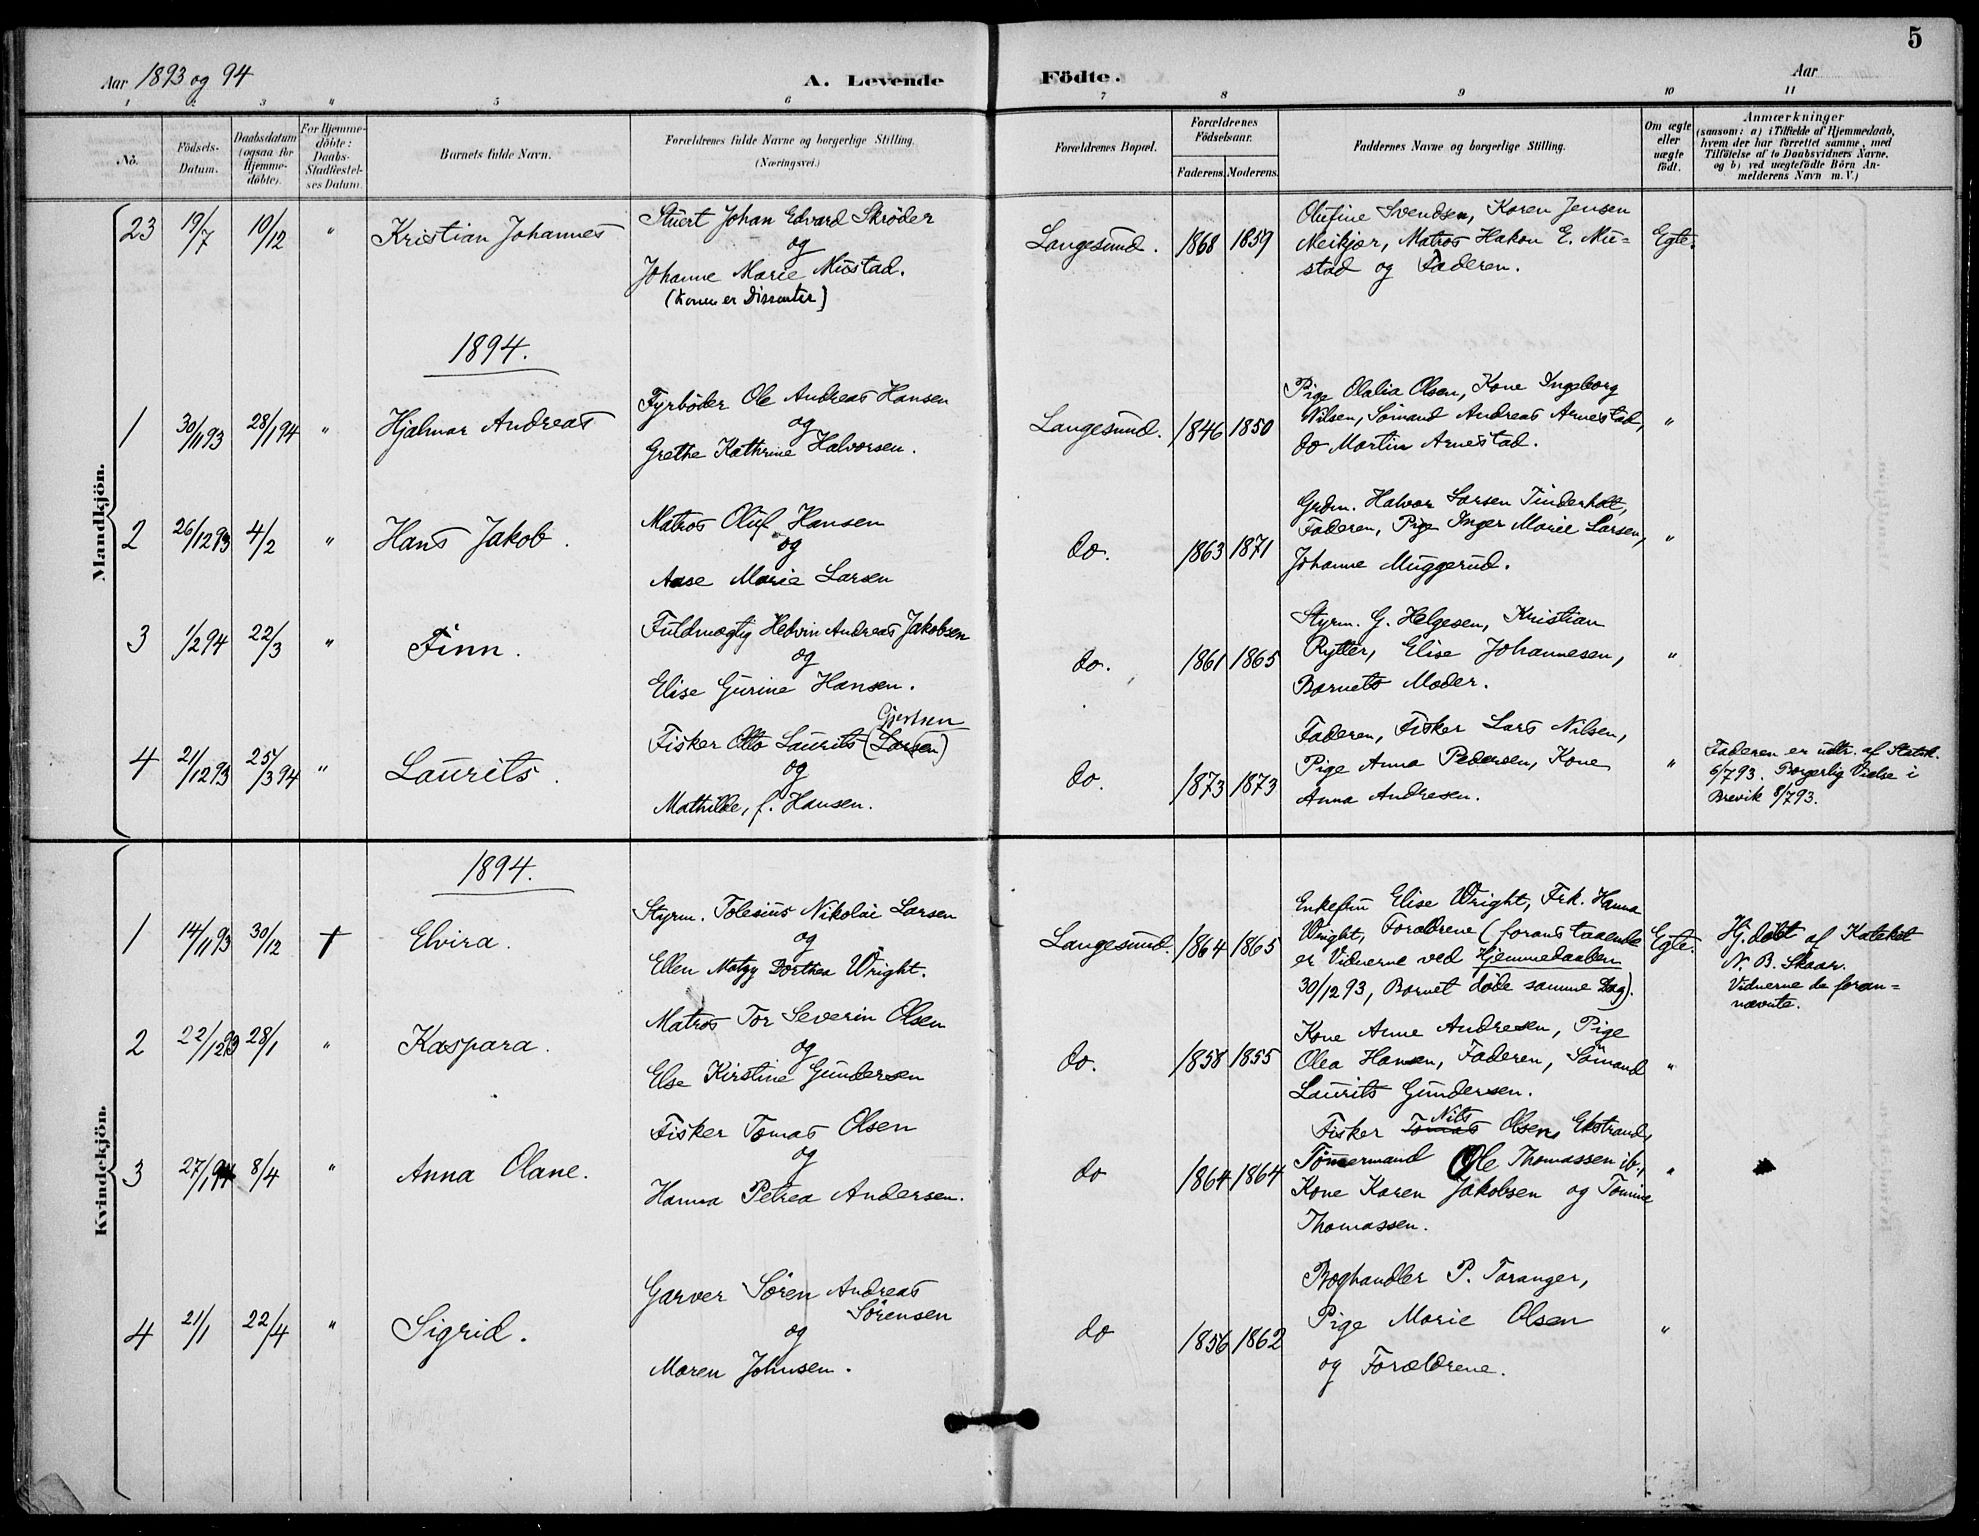 5
Aar 1893 og 94
A. Levende Födte.
Aar
1 2 3 " 5 6 7 8 9 10 11
No.
Födsels-
Datum.
Daabsdatum
(ogsaa for
Hjemme-
döbte).
For Hjemme-
döbte:
Daabs-
Stadfæstel-
ses Datum.
Barnets fulde Navn.
Forældrenes fulde Navne og borgerlige Stilling.
(Næringsvei.)
Forældrenes Bopæl.
Forældrenes
Födselsaar.
Faderens. Moderens.
Faddernes Navne og borgerlige Stilling.
Om ægte
eller
uægte
födt.
Anmærkninger
(saasom: a) i Tilfælde af Hjemmedaab,
hvem der har forrettet samme, med
Tilföielse af to Daabsvidners Navne.
og b) ved uægtefödte Börn An-
melderens Navn m. V.)
Mandkjön.
23 19/7 10/12 " Kristian Johannes
Stuert Johan Edvard Skrøder
og
Johanne Marie Mustad.
(Konen er Dissenter)
Langesund. 1868 1859
Olufine Svendsen, Karen Jensen
Meikjær, Matros Hakon E. Mu=
stad og Faderen.
Egte.
1894.
1 30/11 93 28/1 94 " Hjalmar Andreas
Fyrbøder Ole Andreas Hansen
og
Grethe Kathrine Halvorsen.
Langesund. 1846 1850
Pige Olalia Olsen, Kone Ingeborg
Nilsen, Sømand Andreas Arnestad,
do Martin Arnestad.
"
2 26/12 93 4/2 " Hans Jakob.
Matros Oluf Hansen
og
Aase Marie Larsen
do. 1863 1871
Grdm. Halvor Larsen Tinderholt,
Faderen, Pige Inger Marie Larsen,
Johanne Muggerud.
"
3 1/2 94 22/3 " Finn.
Fuldmægtig Helvin Andreas Jakobsen
og
Elise Gurine Hansen.
do. 1861 1865
Styrm. G. Helgesen, Kristian
Rytter, Elise Johannesen,
Barnets Moder.
"
4 21/12 93 25/3 94 " Laurits.
Gjertsen
Fisker Otto Laurits (Larsen)
og
Mathilde, f. Hansen.
do. 1873 1873
Faderen, Fisker Lars Nilsen,
Pige Anna Pedersen, Kone
Anna Andresen.
"
Faderen er udtr. af Statsk.
6/7 93. Borgerlig Vielse i
Brevik 8/7 93.
Kvindekjön.
1894.
1 14/11 93 30/12 † Elvira.
Styrm. Tolesius Nikolai Larsen
og
Ellen Matzy Dorthea Wright.
Langesund. 1864 1865
Enkefru Elise Wright, Frk. Hanna
Wright, Forældrene (foranstaaende
er Vidnerne ved Hjemmedaaben
30/12 93, Barnet døde samme Dag).
Egte.
Hj. døbt af Kateket
N. B. Skaar.
Vidnerne de foran=
nævnte.
2 22/12 93 28/1 " Kaspara.
Matros Tor Severin Olsen
og
Else Kirstine Gundersen
do. 1858 1855
Kone Anne Andresen, Pige
Olea Hansen, Faderen, Sømand
Laurits Gundersen.
"
3 27/1 94 8/4 " Anna Olane.
Fisker Tomas Olsen
og
Hanna Petrea Andersen.
do 1864 1864
Nils
Fisker Tomas Olsen, Ekstrand,
Tømmermand Ole Thomassen ib.,
Kone Karen Jakobsen og Tomine
Thomassen.
"
4 21/1 22/4 " Sigrid.
Garver Søren Andreas
Sørensen
og
Maren Johnsen.
do 1856 1862
Boghandler P. Taranger,
Pige Marie Olsen
og Forældrene.
"